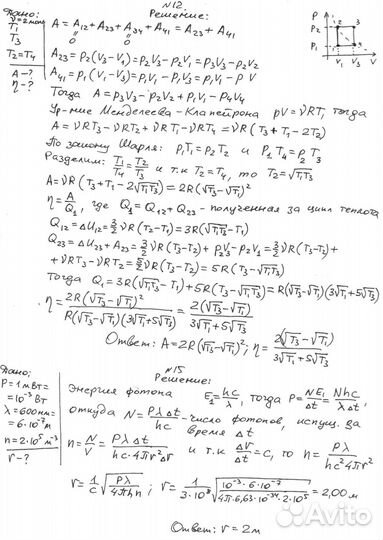 №12
Дано:
ν=2моль
T₁
T₃
T₂=T₄
A-?
η-?
Решение:
A = A₁₂ + A₂₃ + A₃₄ + A₄₁ = A₂₃ + A₄₁
0 0
P
P₂
P₁
2 3
1 4
V₁ V₃ V
A₂₃ = P₂(V₃-V₁) = P₂V₃ - P₂V₁ = P₃V₃ - P₂V₂
A₄₁ = P₁(V₁-V₃) = P₁V₁ - P₁V₃ = P₁V₁ - P V
Тогда A = P₃V₃ - P₂V₂ + P₁V₁ - P₄V₄
Ур-ние Менделеева-Клапейрона pV = νRT, тогда
A = νRT₃ - νRT₂ + νRT₁ - νRT₄ = νR(T₃ + T₁ - 2T₂)
По закону Шарля: P₁T₁ = P₂T₂ и P₁T₄ = P₂T₃
Разделим: T₁/T₄ = T₂/T₃ и т.к T₂ = T₄, то T₂ = √T₁T₃
A = νR(T₃ + T₁ - 2√T₁T₃) = 2R(√T₃ - √T₁)²
η = A/Q₁, где Q₁ = Q₁₂ + Q₂₃ - полученная за цикл теплота
Q₁₂ = ΔU₁₂ = 3/2 νR(T₂-T₁) = 3R(√T₁T₃ - T₁)
Q₂₃ = ΔU₂₃ + A₂₃ = 3/2 νR(T₃-T₂) + P₂V₃ - P₂V₁ = 3/2 νR(T₃-T₂) +
+ νRT₃ - νRT₂ = 5/2 νR(T₃-T₂) = 5R(T₃ - √T₁T₃)
Тогда Q₁ = 3R(√T₁T₃ - T₁) + 5R(T₃ - √T₁T₃) = R(√T₃ - √T₁)(3√T₁ + 5√T₃)
η = 2R(√T₃ - √T₁)² / R(√T₃ - √T₁)(3√T₁ + 5√T₃) = 2(√T₃ - √T₁) / 3√T₁ + 5√T₃
Ответ: A = 2R(√T₃ - √T₁)²; η = 2(√T₃ - √T₁) / 3√T₁ + 5√T₃
№15
Дано:
P = 1мВт =
= 10⁻³ Вт
λ = 600нм =
= 6·10⁻⁷м
n = 2·10⁵ м⁻³
r-?
Решение:
Энергия фотона E₁ = hc/λ, тогда P = NE₁/Δt = Nhc/λΔt,
откуда N = PλΔt/hc - число фотонов, испущ. за
время Δt
n = N/V = PλΔt/hc·4πr²ΔV и т.к ΔV/Δt = c, то n = Pλ/hc²4πr²
r = 1/c √Pλ/4πhn; r = 1/3·10⁸ √10⁻³·6·10⁻⁷/4π·6,63·10⁻³⁴·2·10⁵ = 2,00 м
Ответ: r = 2м
Avito